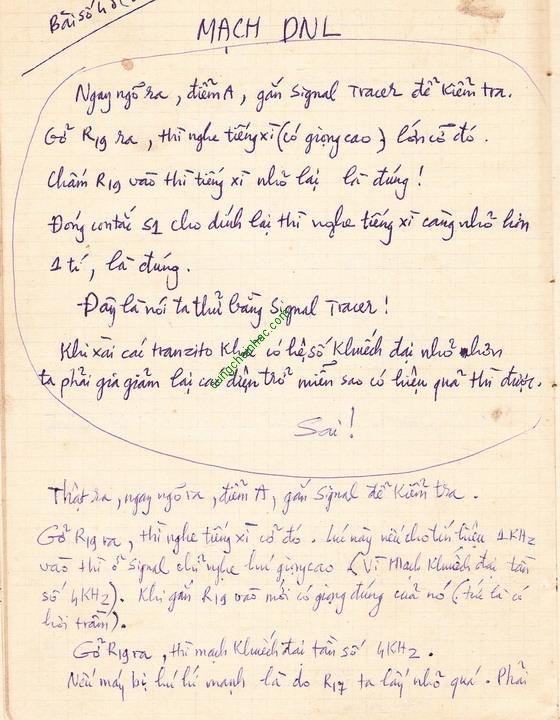 Bài số 48
MẠCH DNL
Ngay ngõ ra, điểm A, gắn Signal Tracer để kiểm tra.
Gỡ R19 ra, thì nghe tiếng xì (có giọng cao) lớn cỡ đó.
Chấm R19 vào thì tiếng xì nhỏ lại là đúng!
Đóng contắc S1 cho dính lại thì nghe tiếng xì càng nhỏ hơn
1 tí, là đúng.
Đây là nói ta thử bằng Signal Tracer!
Khi xài các tranzito khác có hệ số khuếch đại nhỏ hơn
ta phải gia giảm lại các điện trở miễn sao có hiệu quả thì được.
Sai!
Thật ra, ngay ngõ ra, điểm A, gắn Signal để kiểm tra.
Gỡ R19 ra, thì nghe tiếng xì cỡ đó. Lúc này nếu cho tín hiệu 1KHz
vào thì ở Signal chỉ nghe hú giọng cao (Vì Mạch khuếch đại tần
số 4KHz). Khi gắn R19 vào mới có giọng đúng của nó (tức là có
hơi trầm).
Gỡ R19 ra, thì mạch khuếch đại tần số 4KHz.
Nếu máy bị hú hú mạnh là do R17 ta lấy nhỏ quá. Phải
cungchoinhac.com